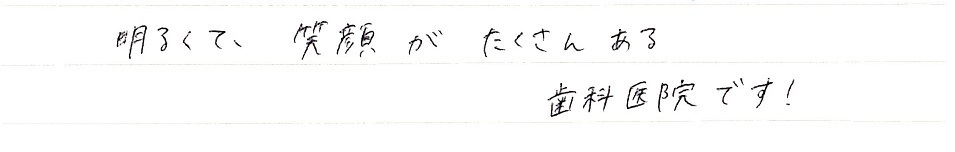 明るくて、笑顔がたくさんある
歯科医院です！